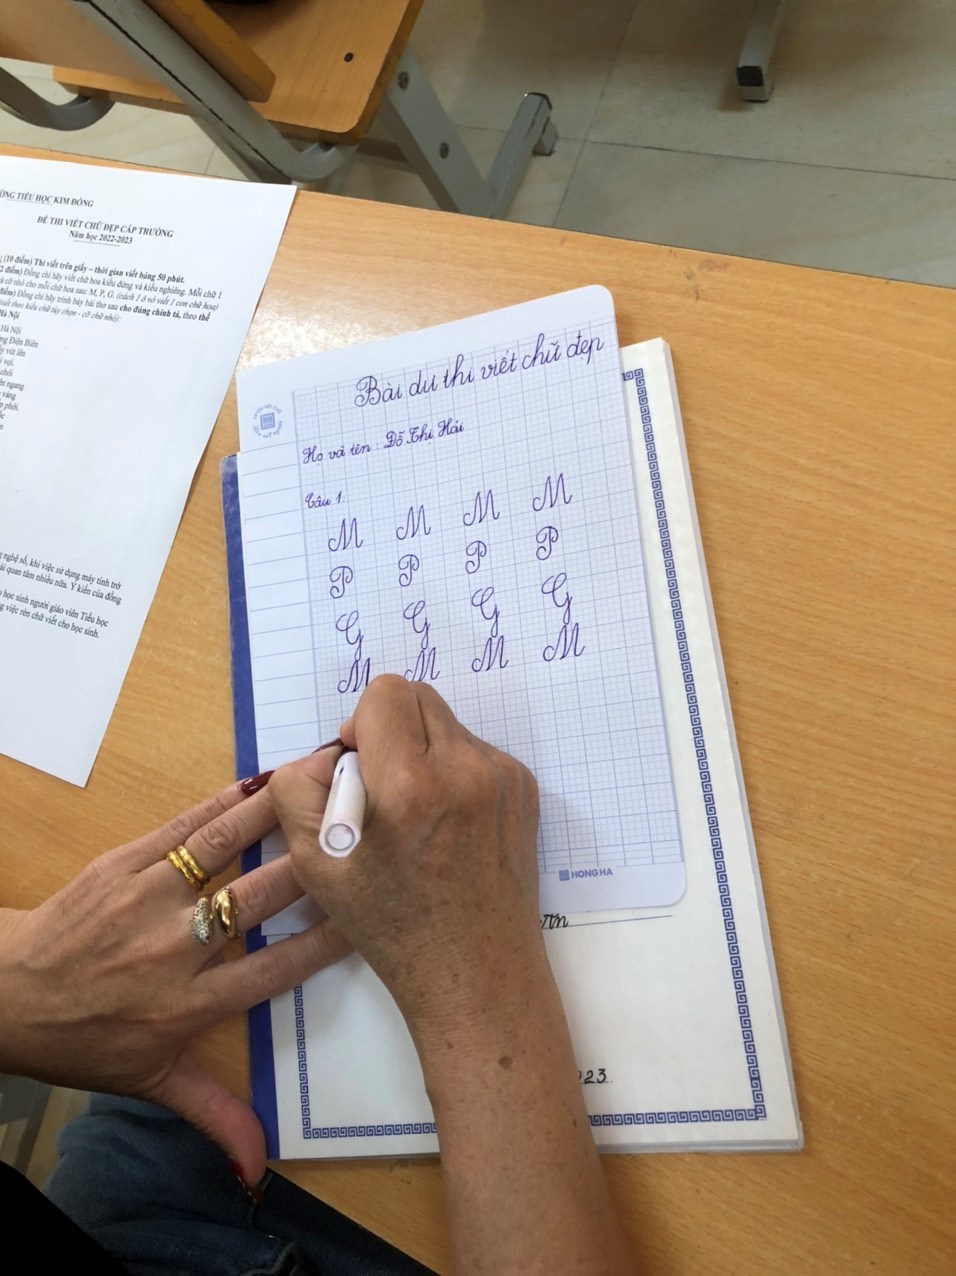 TIỂU HỌC KIM ĐỒNG
ĐỀ THI VIẾT CHỮ ĐẸP CẤP TRƯỜNG
Năm học 2022-2023
(10 điểm) Thi viết trên giấy – thời gian viết bảng 50 phút.
điểm) Đồng chí hãy viết chữ hoa kiểu đứng và kiểu nghiêng. Mỗi chữ 1
cỡ nhỏ cho mỗi chữ hoa sau: M, P, G. (cách 1 ô vở viết 1 con chữ hoa)
điểm) Đồng chí hãy trình bày bài thơ sau cho đúng chính tả, theo thể
theo kiểu chữ tùy chọn - cỡ chữ nhỏ):
Hà Nội
Hà Nội
Điện Biên
vút lên
vọi.
chói
ngang
vàng
phới.
nghệ số, khi việc sử dụng máy tính trở
quan tâm nhiều nữa. Ý kiến của đồng
học sinh người giáo viên Tiểu học
việc rèn chữ viết cho học sinh.
Bài dự thi viết chữ đẹp
Họ và tên : Đỗ Thị Hải
Câu 1.
M M M M
P P P P
G G G G
M M M M
HONG HA
23